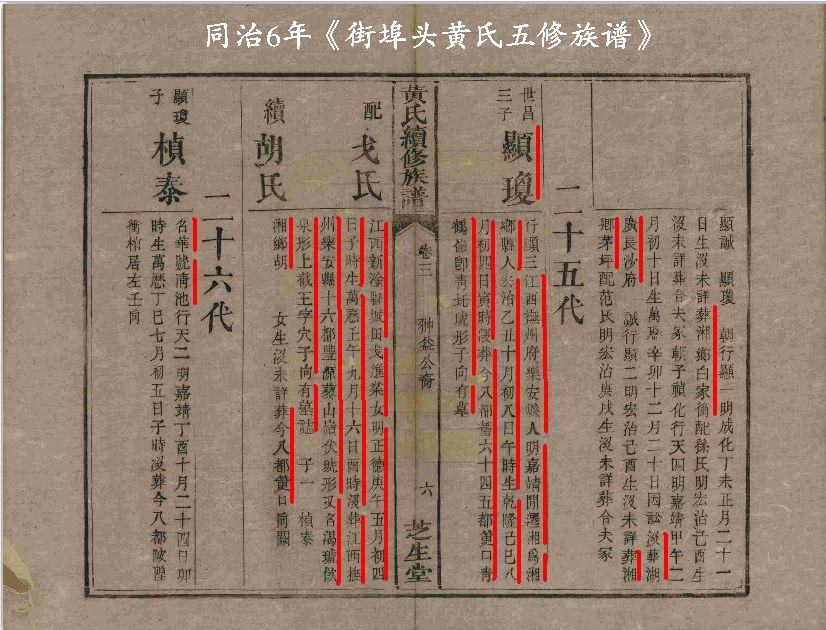 同治6年《街埠头黄氏五修族谱》
顯誠 顯瓊 朝行顯一明成化丁未正月二十一
日生沒未詳葬湘鄉白家衝配徐氏明宏治己酉生
沒未詳葬合夫冢朝子禎化行天四明嘉靖甲午二
月初十日生萬曆辛卯十二月二十日因訟沒葬湖
廣長沙府 誠行顯二明宏治己酉生沒未詳葬湘
鄉茅坪配范氏明宏治庚戌生沒未詳葬合夫冢
二十五代
世昌
三子
顯瓊
行顯三江西撫州府樂安縣人明嘉靖間遷湘為湘
鄉縣人宏治乙丑十月初八日午時生乾隆己巳八
月初四日寅時沒葬今八都舊六十四五都黃口青
鶴嶺卽靑圫琥形子向有墓
黃氏續修族譜
卷三
翀益公裔
六
芝生堂
配
戈氏
江西新淦縣城田戈漁業女明正德庚午五月初四
日子時生萬曆壬午九月十六日酉時沒葬江西撫
州樂安縣十六都豐源蓼山嶺伏虢形又名渴琥飲
泉形上截王字穴子向有墓誌 子一 楨泰
續
胡氏
湘鄉胡 女生沒未詳葬今八都黃口同關
二十六代
顯瓊
子
楨泰
名華號淸池行天二明嘉靖丁酉十月二十四日卯
時生萬曆丁巳七月初五日子時沒葬今八都陂㙮
衝棺居左壬向